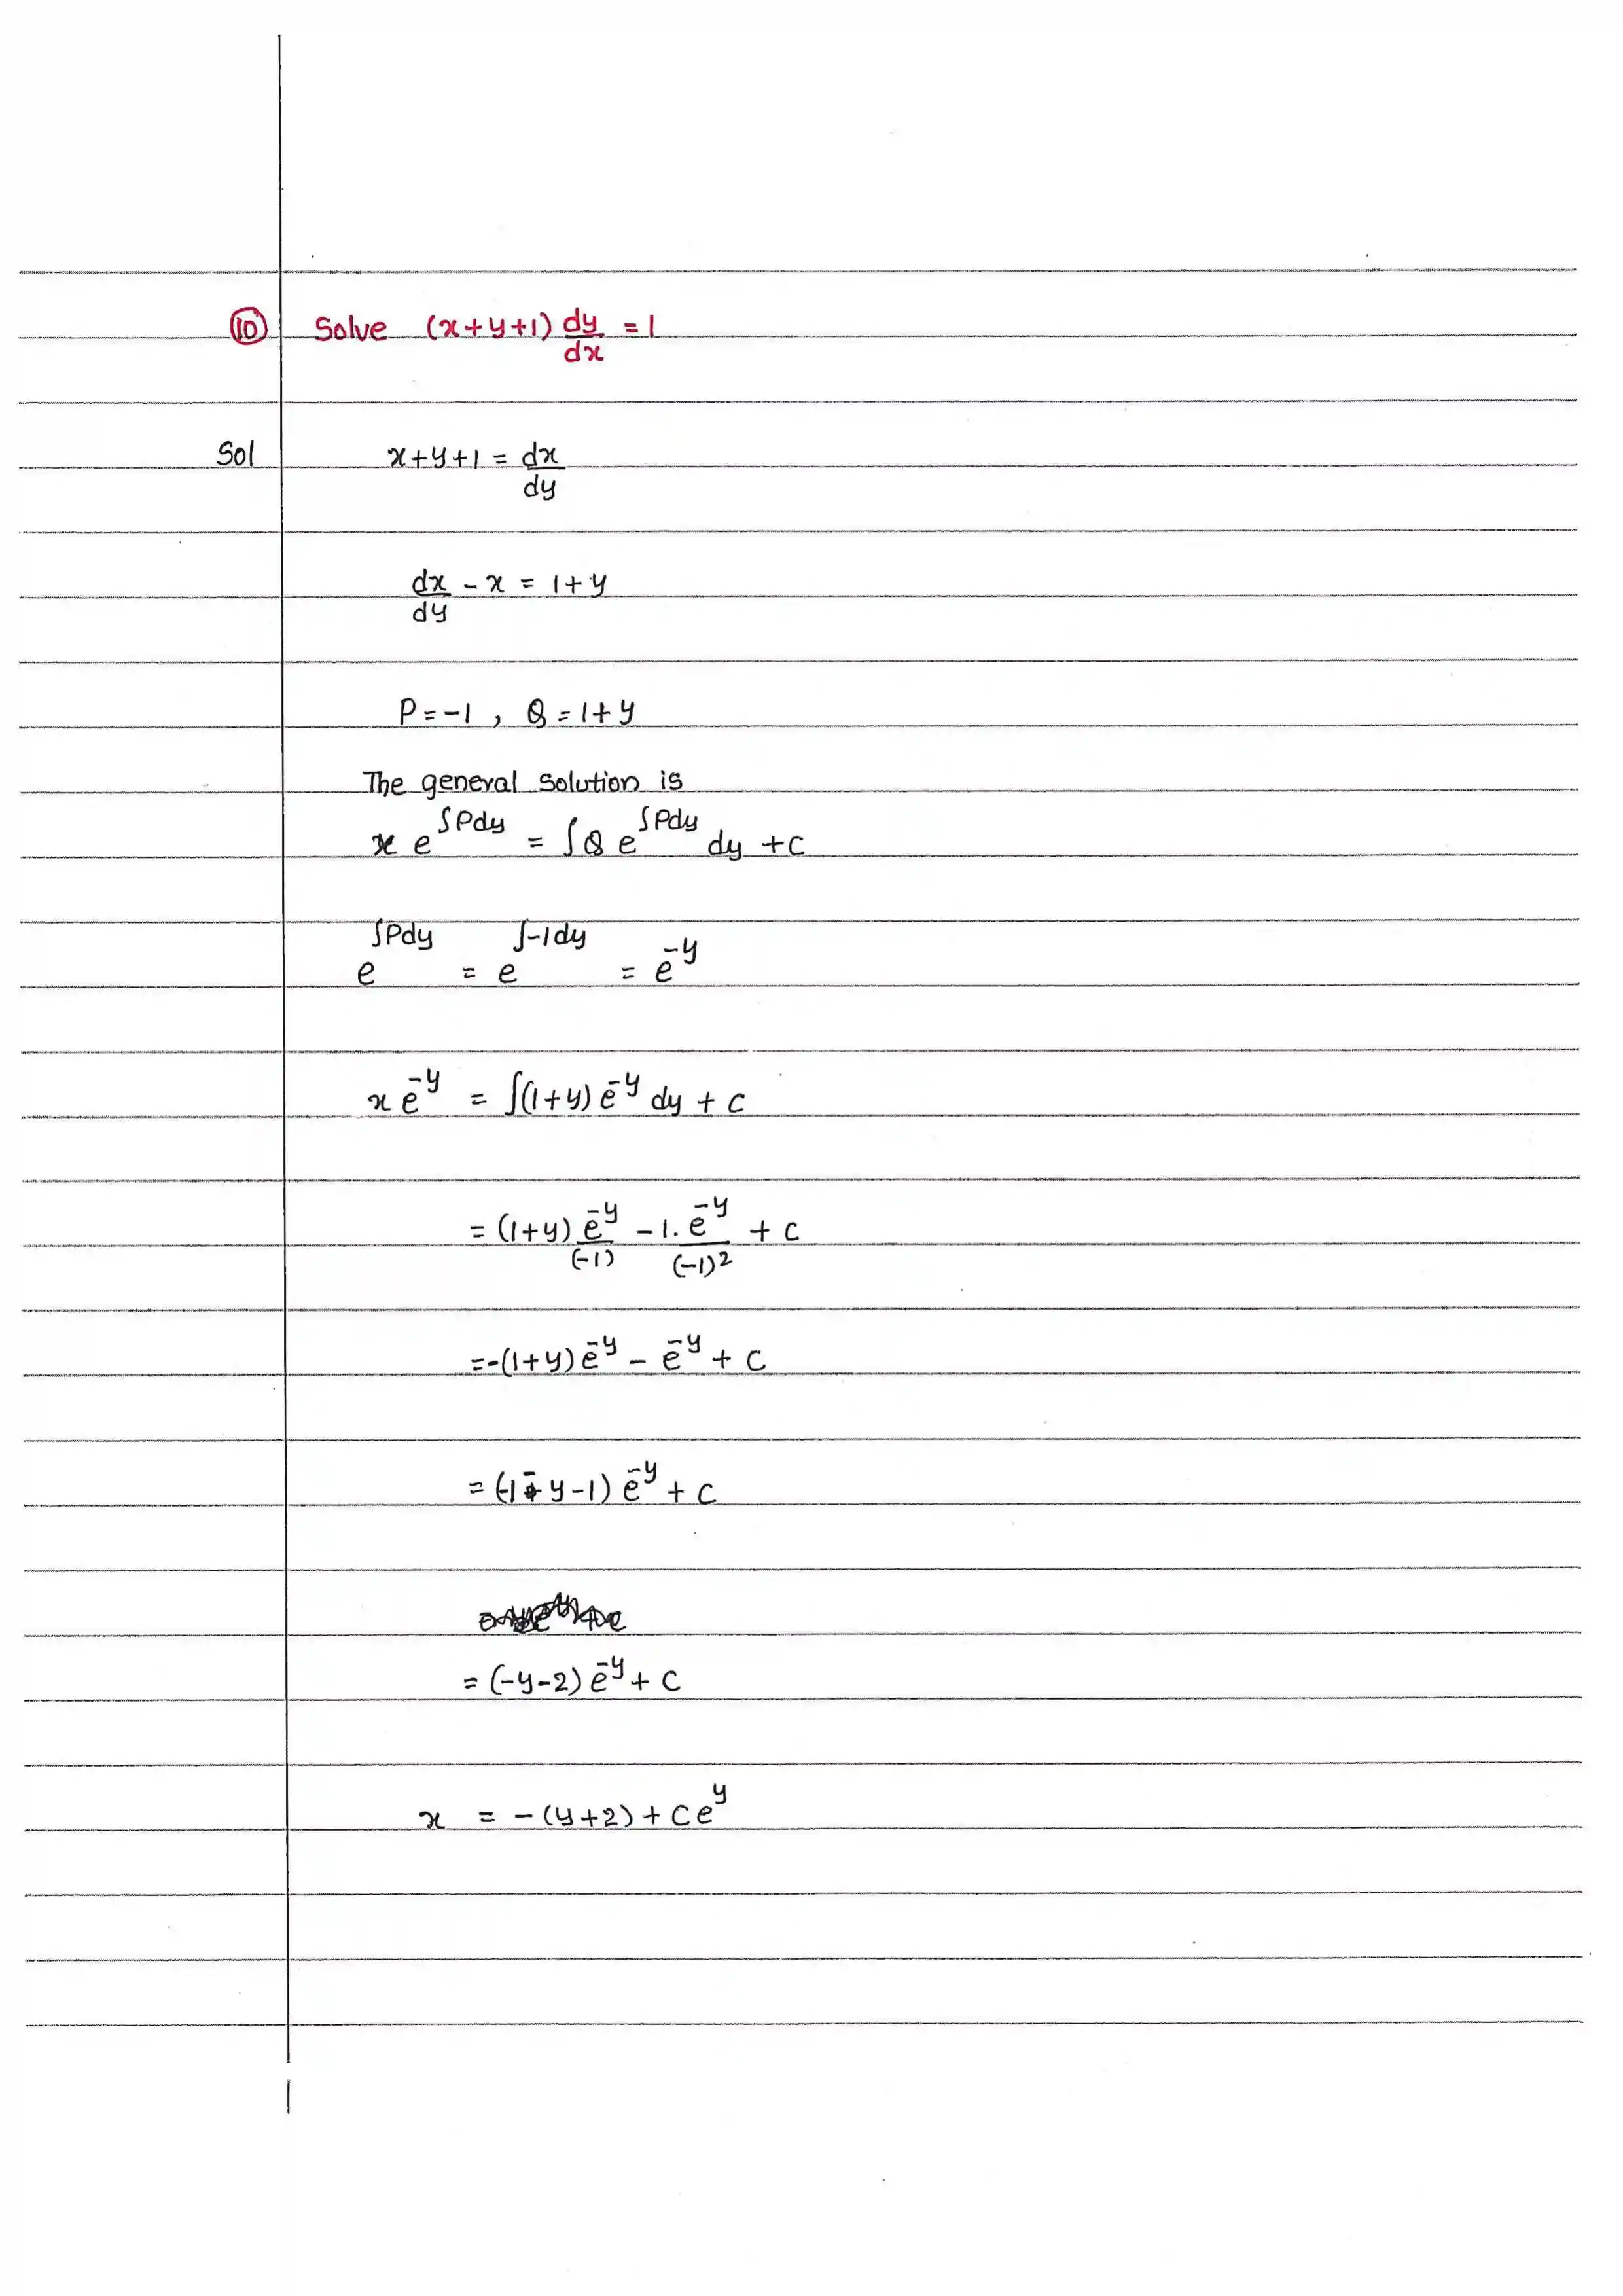 ⑩ Solve (x+y+1) dy/dx = 1
Sol x+y+1 = dx/dy
dx/dy - x = 1+y
P = -1 , Q = 1+y
The general solution is
x e^∫Pdy = ∫Q e^∫Pdy dy + c
e^∫Pdy = e^∫-1dy = e^-y
x e^-y = ∫(1+y) e^-y dy + c
= (1+y) e^-y/(-1) - 1. e^-y/(-1)² + c
= -(1+y) e^-y - e^-y + c
= (-1 - y - 1) e^-y + c
= (-y-2) e^-y + c
x = -(y+2) + c e^y